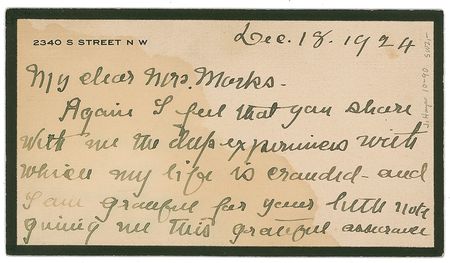 2340 S STREET N W
Dec. 18. 1924
My dear Mrs. Marks -
Again I feel that you share
with me the deep experiences with
which my life is crowded - and
I am grateful for your little note
giving me this grateful assurance